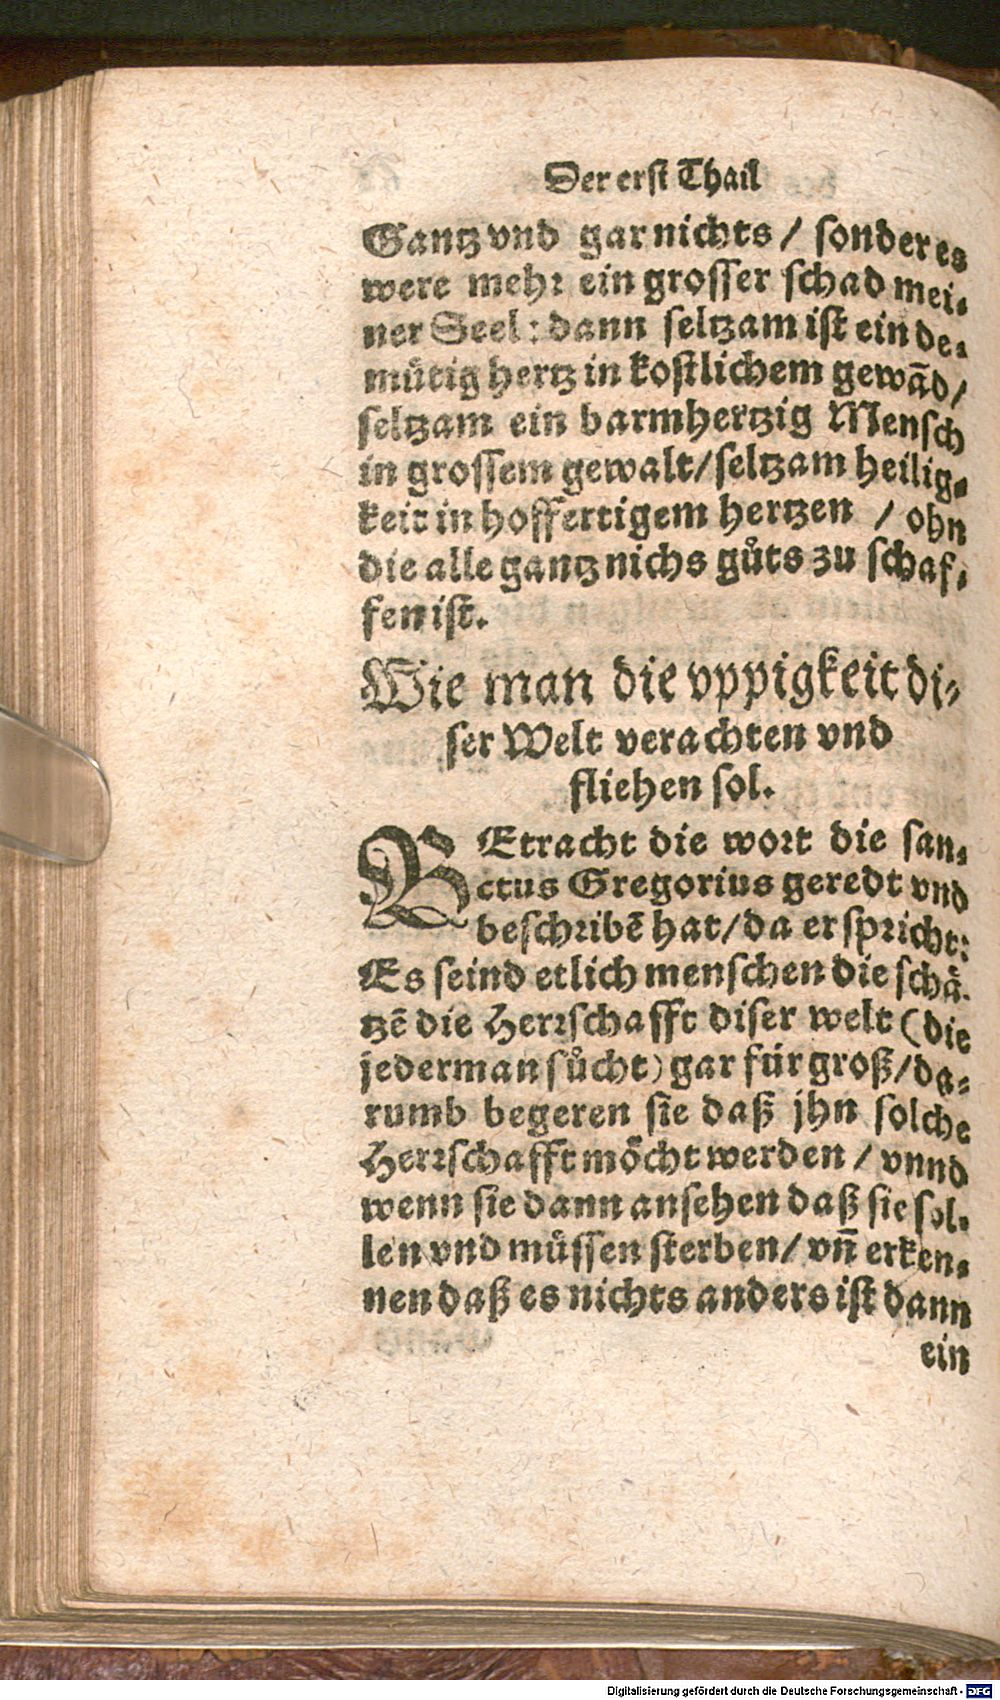 Der erst Thail
Gantz vnd gar nichts / sonder es
were mehr ein grosser schad mei-
ner Seel: dann seltzam ist ein de-
mütig hertz in kostlichem gewād/
seltzam ein barmhertzig Mensch
in grossem gewalt/seltzam heilig-
keit in hoffertigem hertzen / ohn
die alle gantz nichs gůts zu schaf-
fen ist.
Wie man die vppigkeit di-
ser Welt verachten vnd
fliehen sol.
BEtracht die wort die san-
ctus Gregorius geredt vnd
beschribē hat/da er spricht:
Es seind etlich menschen die schä-
tzē die Herrschafft diser welt (die
jederman sůcht) gar für groß/da-
rumb begeren sie daß jhn solche
Herrschafft möcht werden / vnnd
wenn sie dann ansehen daß sie sol-
len vnd müssen sterben/ vn̄ erken-
nen daß es nichts anders ist dann
ein
Digitalisierung gefördert durch die Deutsche Forschungsgemeinschaft - DFG